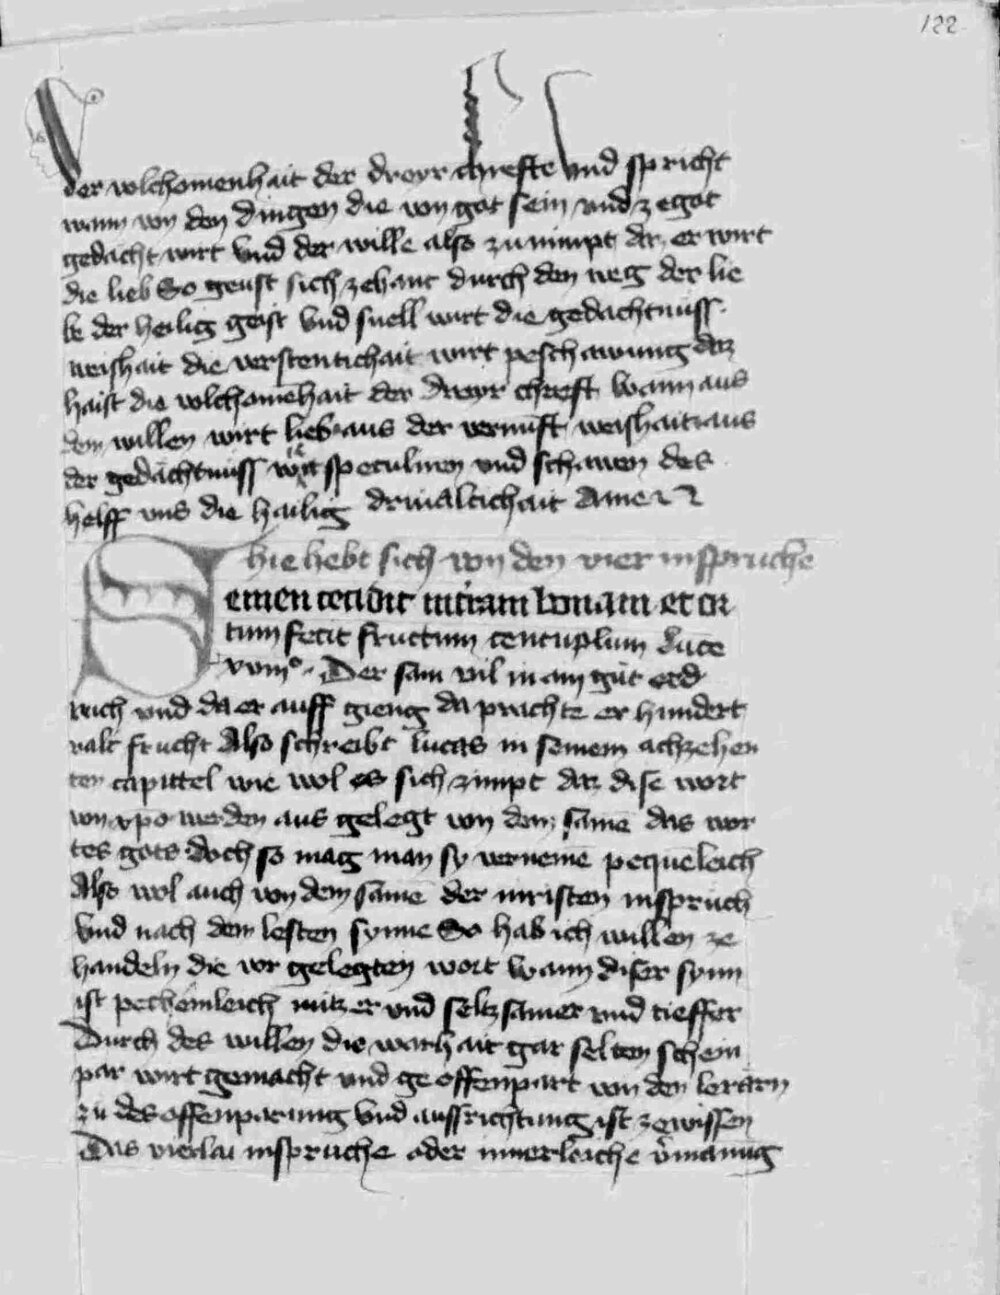 122
der volchomenhait der dreyr chrefte vnd spricht
wann von den dingen die von got sein vnd ze got
gedacht wirt vnd der wille also zu nimpt dz er wirt
die lieb So geust sich zehant durch den weg der lie
be der heilig geist vnd snell wirt die gedachtnuss
weishait die verstentichait wirt peschawung daz
haist die volchomēhait der dreyr chreft Wann aus
dem willen wirt lieb aus der vernūft weishait aus
der gedachtnuss wirt speculiren vnd schawen des
helff vns die hailig driualtichait Amen
hie hebt sich von den vier inspruche
Semen cecidit in terram bonam et or
tum fecit fructum centuplum Luce
xviii° Der sam vil in ain gut erd
reich vnd da er auff gieng da prachte er hundert
valt frucht Also schreibt lucas in seinem achzehen
ten capittel wie wol es sich zimpt daz dise wort
von xp̄o werden aus gelegt von dem samē das wor
tes gots doch so mag man sy vernemē pequēleich
Also wol auch von dem samē der inristen inspruch
Vnd nach dem lesten synne So hab ich willen ze
handeln die vor gelegten wort Wann diser synn
ist pechēmleich nutzer vnd seltzsamer vnd tieffer
Durch des willen die warhait gar selten schein
par wirt gemacht vnd geoffenpart von den lerārn
zu des offenparung vnd auffrichtung ist ze wissen
Das vierlai inspruche oder innerleiche v̄manūg